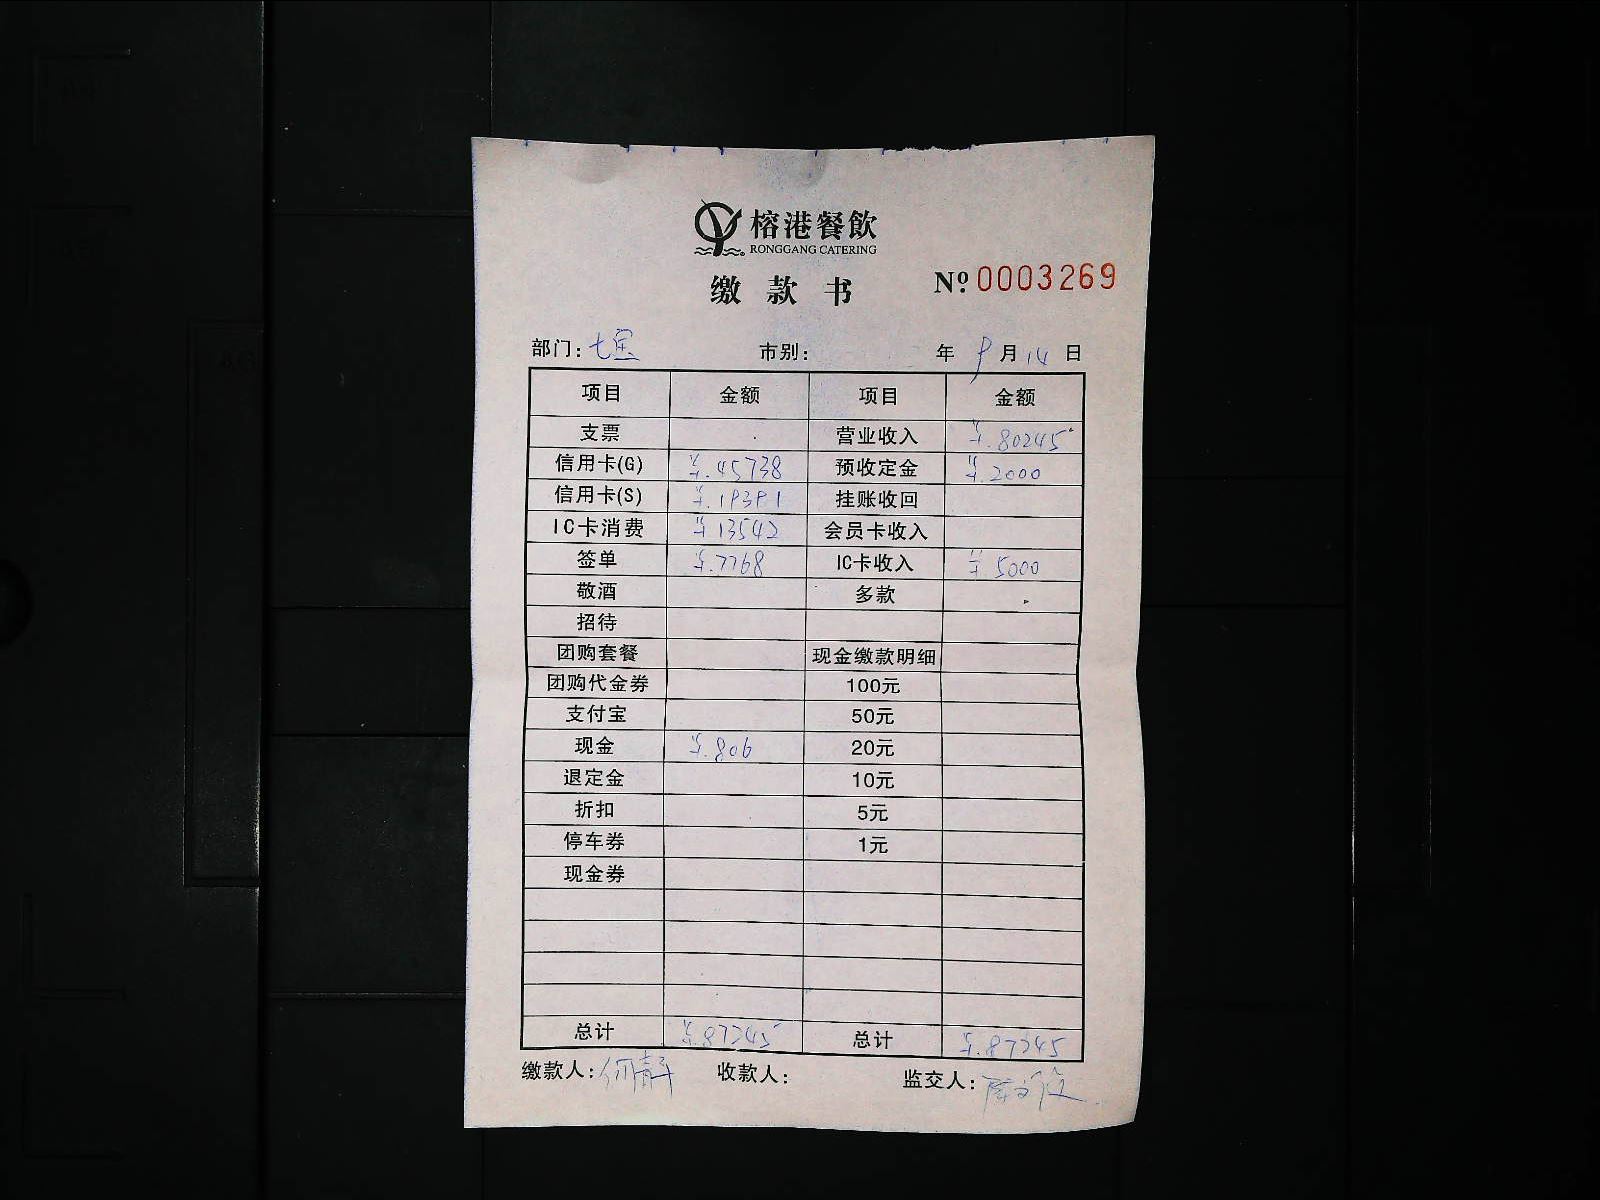 榕港餐飲
RONGGANG CATERING
缴款书 Nº 0003269
部门: 七宝 市别: 年 9 月 14 日
项目 金额 项目 金额
支票 营业收入 ¥.80245
信用卡(G) ¥.45738 预收定金 ¥.2000
信用卡(S) ¥.19391 挂账收回
IC卡消费 ¥13542 会员卡收入
签单 ¥.7768 IC卡收入 ¥.5000
敬酒 多款
招待
团购套餐 现金缴款明细
团购代金券 100元
支付宝 50元
现金 ¥.806 20元
退定金 10元
折扣 5元
停车券 1元
现金券
总计 ¥.87245 总计 ¥.87245
缴款人: 何静 收款人: 监交人: